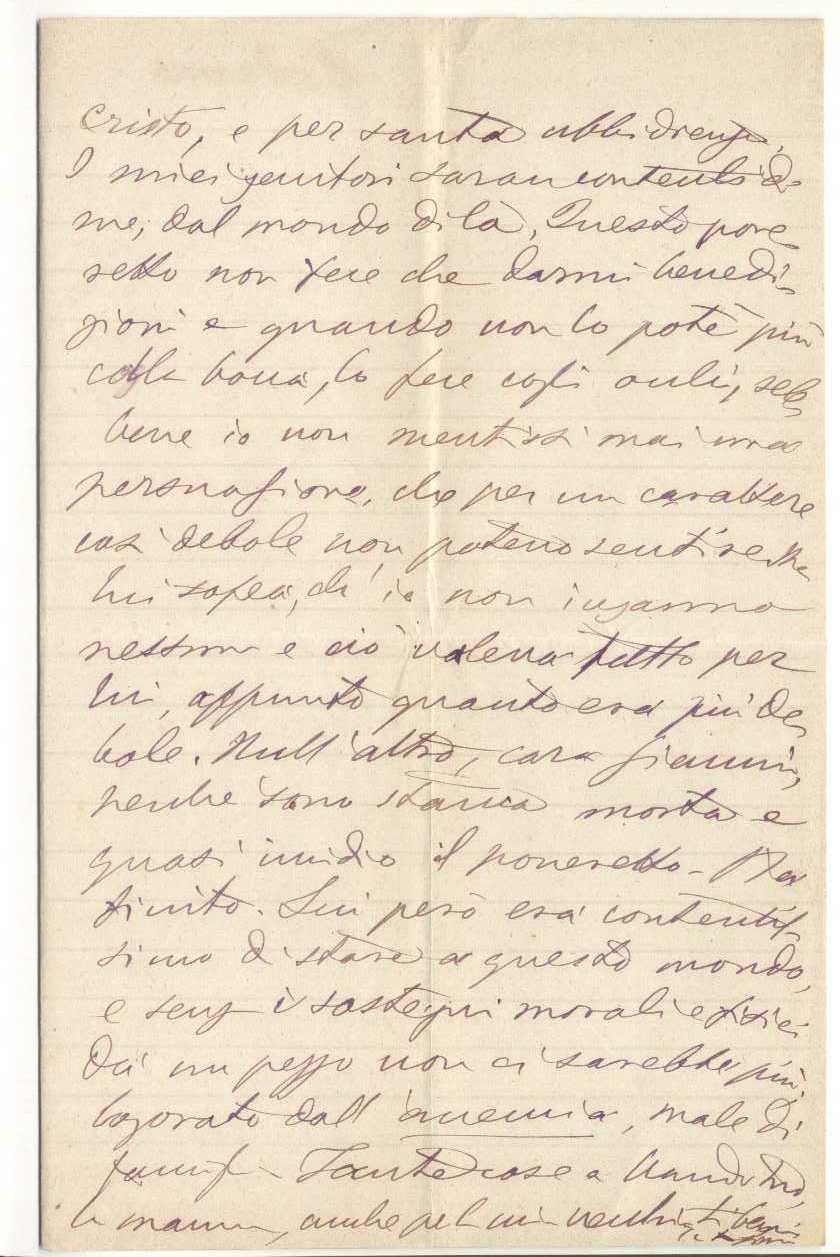 Cristo, e per santa ubbidienza.
I miei genitori saran contenti di
me, dal mondo di là. Questo pove
retto non fece che darmi benedi-
zioni e quando non lo potè più
colla bocca, lo fece cogli occhi, seb
bene io non mentissi mai una
persuasione, che per un carattere
così debole non potevo sentire. Ma
lui sapea, ch'io non inganno
nessuno e ciò valeva tutto per
lui, appunto quanto era più de
bole. Null'altro, cara Giannina,
perchè sono stanca morta e
quasi invidio il poveretto. Ha
finito. Lui però era contentis
simo di stare a questo mondo,
e senza i sostegni morali e fisici
da un pezzo non ci sarebbe più,
logorato dall'anemia, male di
famiglia. Tante cose a
la mamma, anche pel mio